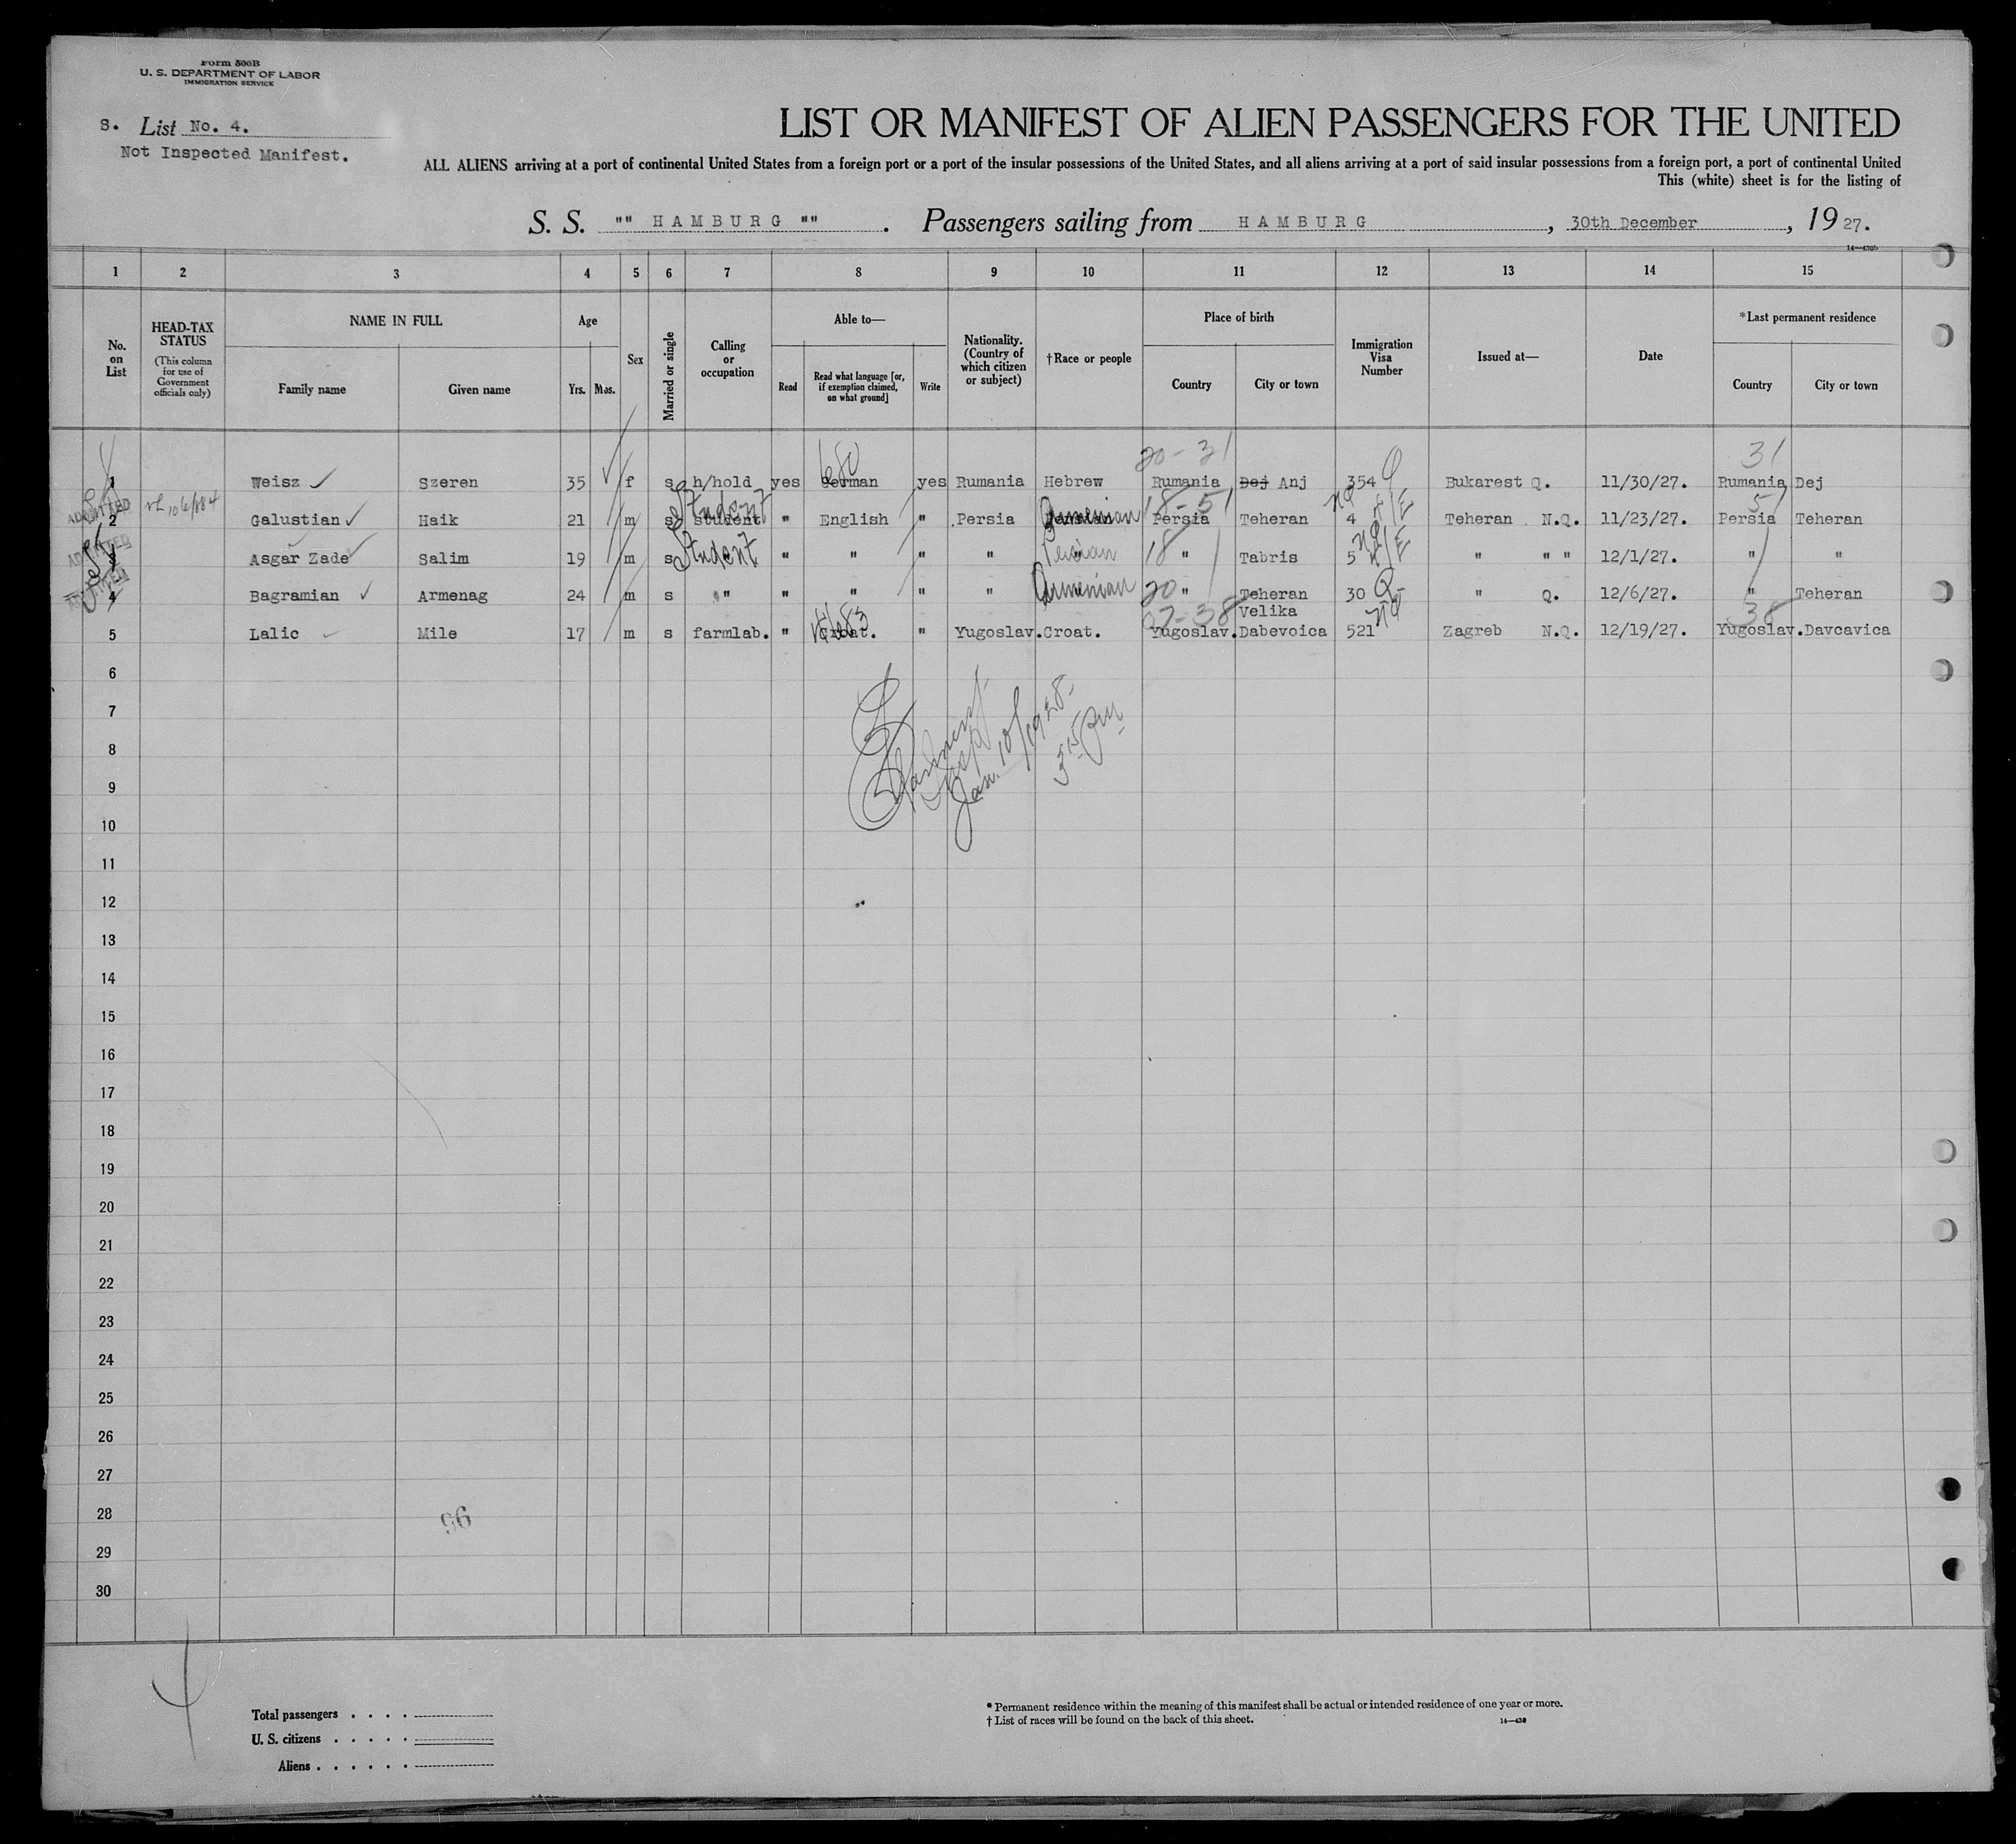 Form 500B
U. S. DEPARTMENT OF LABOR
IMMIGRATION SERVICE
S. List No. 4.
Not Inspected Manifest.
LIST OR MANIFEST OF ALIEN PASSENGERS FOR THE UNITED
ALL ALIENS arriving at a port of continental United States from a foreign port or a port of the insular possessions of the United States, and all aliens arriving at a port of said insular possessions from a foreign port, a port of continental United
This (white) sheet is for the listing of
S. S. "" HAMBURG "" . Passengers sailing from HAMBURG , 30th December , 19 27.
1 2 3 4 5 6 7 8 9 10 11 12 13 14 15
No. on List
HEAD-TAX STATUS (This column for use of Government officials only)
NAME IN FULL
Family name Given name
Age
Yrs. Mos.
Sex
Married or single
Calling or occupation
Able to—
Read Read what language [or, if exemption claimed, on what ground] Write
Nationality. (Country of which citizen or subject)
†Race or people
Place of birth
Country City or town
Immigration Visa Number
Issued at—
Date
*Last permanent residence
Country City or town
20-31 31
1 Weisz Szeren 35 f s h/hold yes German yes Rumania Hebrew Rumania Dej Anj 354 Q Bukarest Q. 11/30/27. Rumania Dej
ADMITTED Student Armenian 18-51 NQ 51
2 Galustian Haik 21 m s student " English " Persia Persia Teheran 4 Teheran N.Q. 11/23/27. Persia Teheran
ADMITTED Student Persian 18 NQ
3 Asgar Zade Salim 19 m s " " " " " Tabris 5 " " " 12/1/27. " "
ADMITTED Armenian 20 Q
4 Bagramian Armenag 24 m s " " " " " " Teheran 30 " Q. 12/6/27. " Teheran
Velika
37-38 NQ 38
5 Lalic Mile 17 m s farmlab. " Croat. " Yugoslav. Croat. Yugoslav. Dabevoica 521 Zagreb N.Q. 12/19/27. Yugoslav. Davcavica
6
7
8
Jan. 10/1928.
3 15 PM
9
10
11
12
13
14
15
16
17
18
19
20
21
22
23
24
25
26
27
28
96
29
30
Total passengers . . . .
U. S. citizens . . . . .
Aliens . . . . . .
* Permanent residence within the meaning of this manifest shall be actual or intended residence of one year or more.
† List of races will be found on the back of this sheet.
14—430